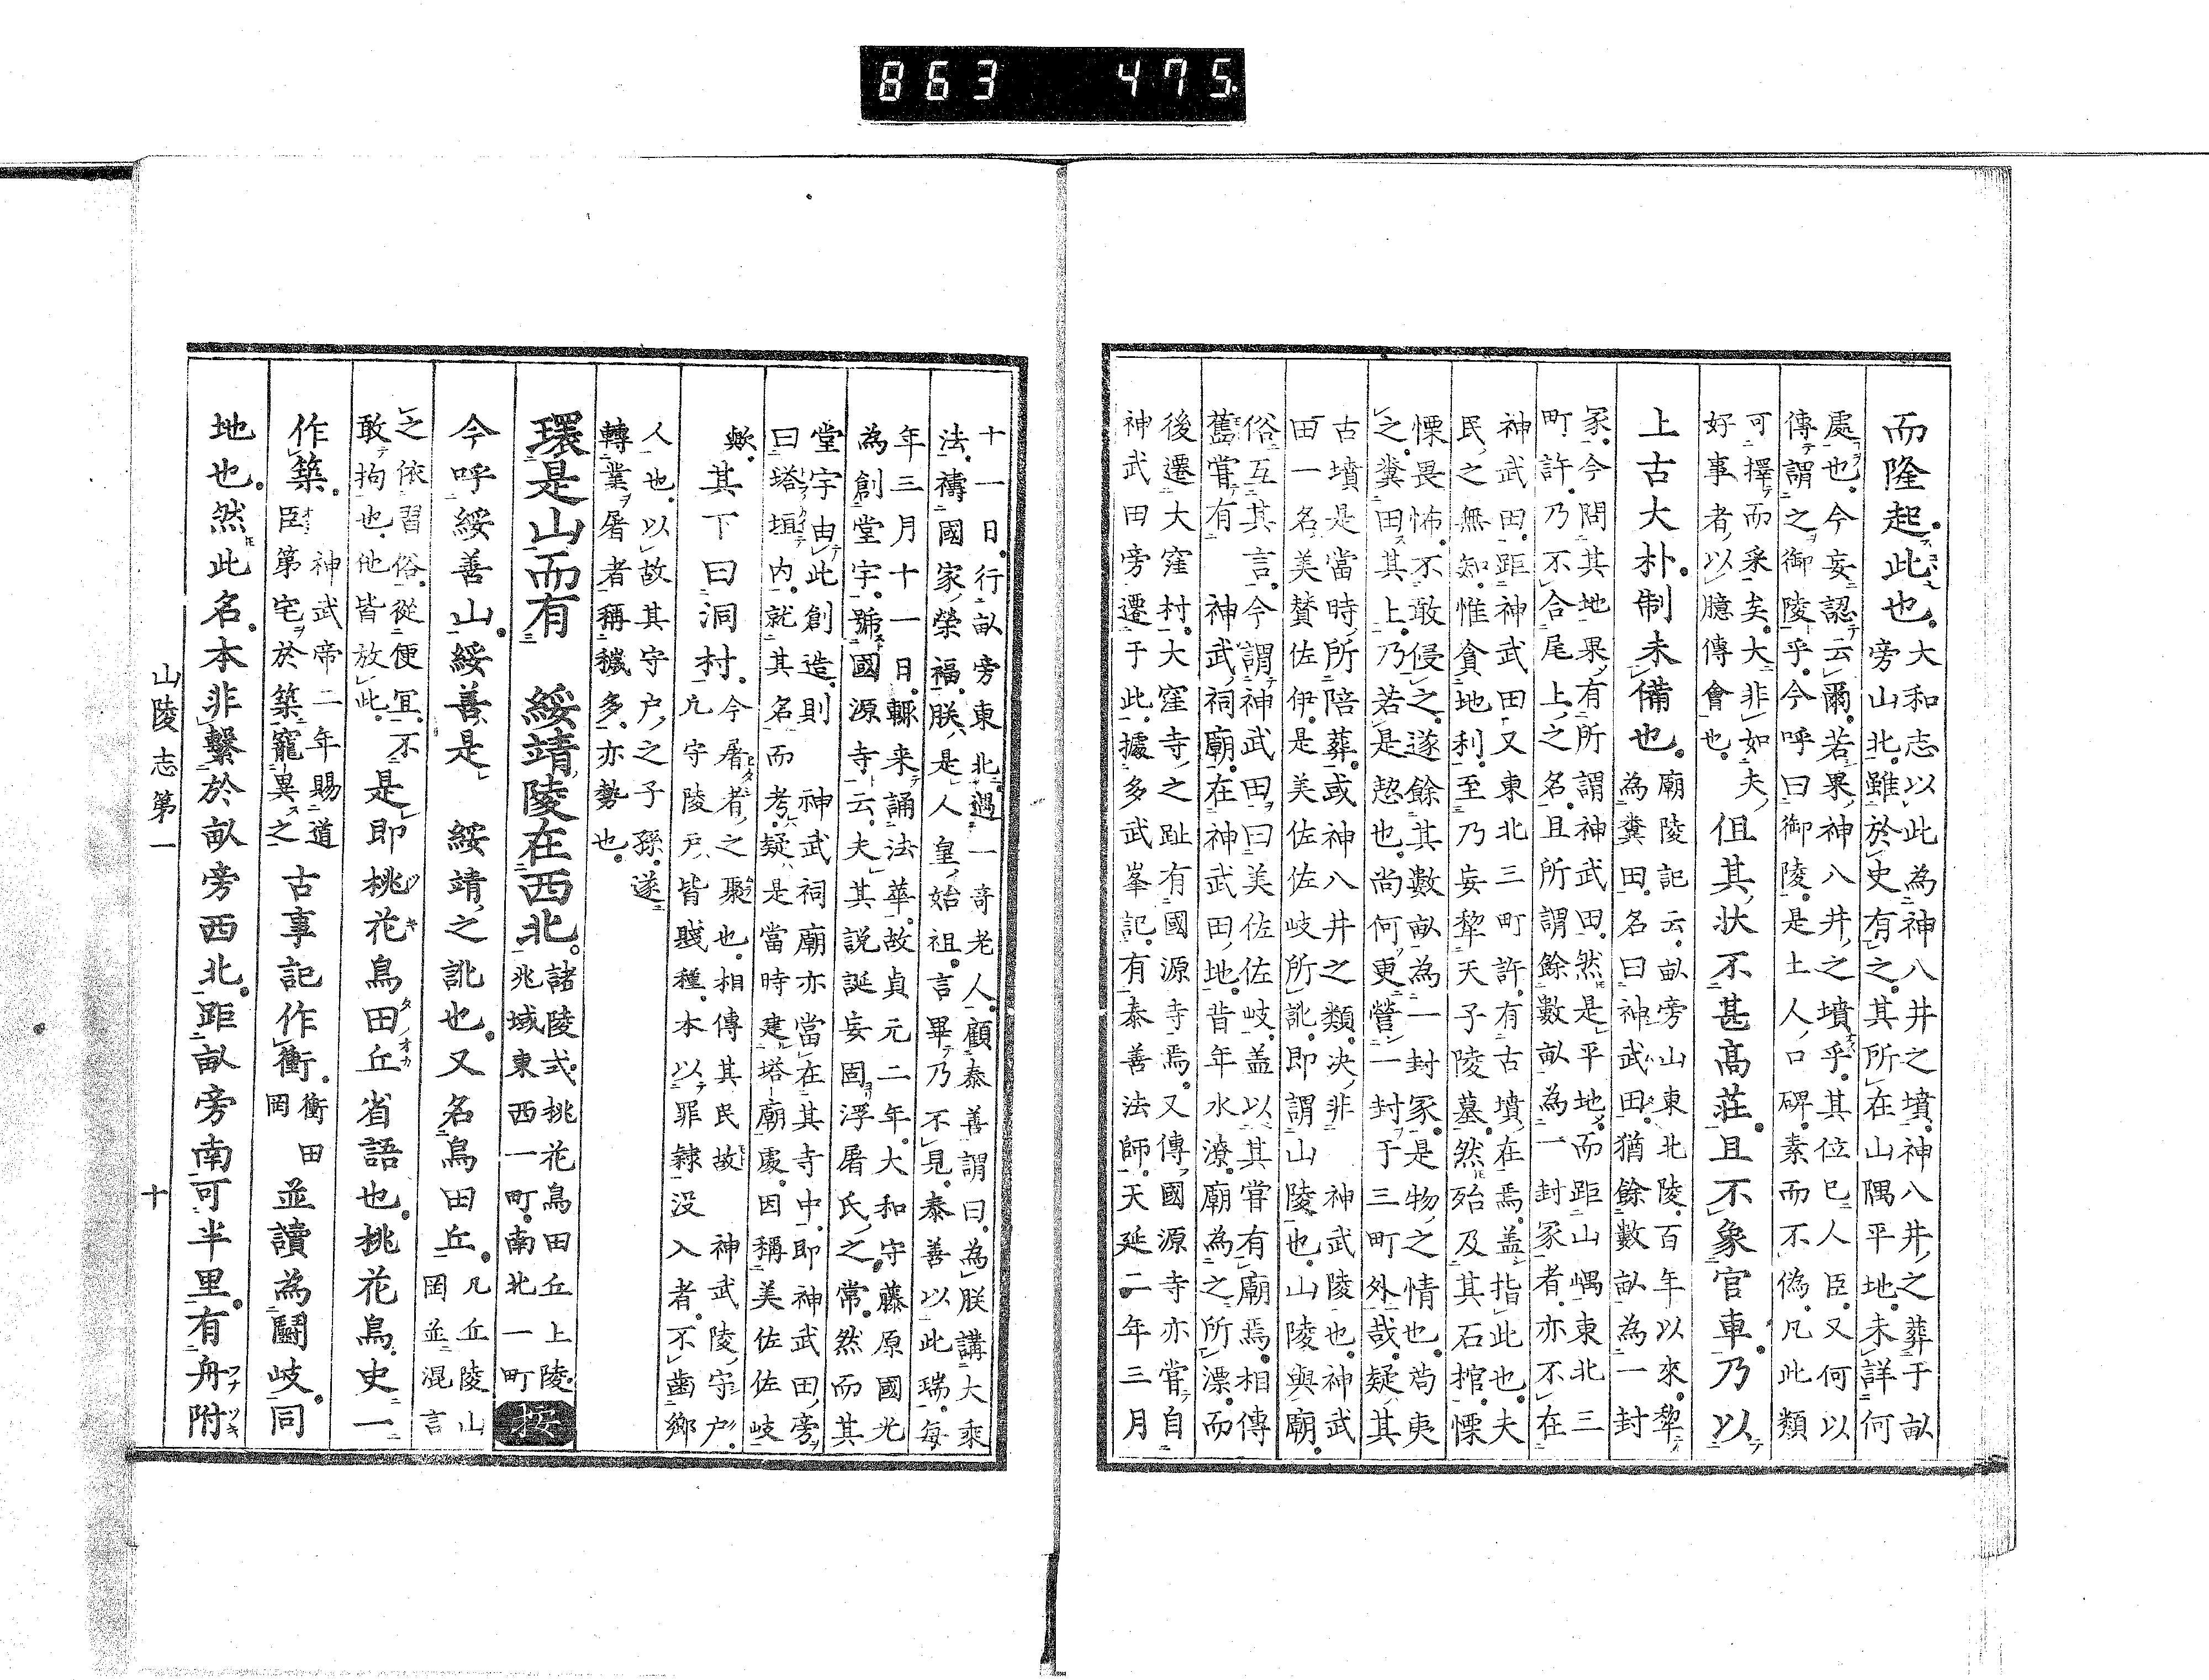 而隆起。此也。大和志以此為神八井之墳。神八井之葬于畝
旁山北。雖於史有之。其所在山隅平地。未詳何
處也。今妄認云爾。若果神八井之墳乎。其位已人臣。又何以
傳謂之御陵乎。今呼曰御陵。是土人口碑。素而不偽。凡此類
可擇而采矣。大非如夫
好事者以臆傳會也。但其狀不甚高莊。且不象官車。乃以
上古大朴。制未備也。廟陵記云。畝旁山東北陵。百年以來。犁
為糞田。名曰神武田。猶餘數畝為一封
冢。今問其地。果有所謂神武田。然是平地。而距山嵎東北三
町許。乃不合尾上之名。且所謂餘數畝為一封冢者。亦不在
神武田。距神武田又東北三町許。有古墳在焉。盖指此也。夫
民之無知。惟貪地利。至乃妄犁天子陵墓。然殆及其石棺。慄
慄畏怖。不敢侵之。遂餘其數畝為一封冢。是物之情也。苟夷
之糞田其上。乃若是恝也。尚何更營一封于三町外哉。疑其
古墳是當時所陪葬。或神八井之類。决非 神武陵也。神武
田一名美賛佐伊。是美佐佐岐所訛。即謂山陵也。山陵與廟。
俗互其言。今謂神武田曰美佐佐岐。盖以其甞有廟焉。相傳
舊甞有 神武祠廟。在神武田地。昔年水潦。廟為之所漂。而
後遷大窪村。大窪寺之趾有國源寺焉。又傳。國源寺亦甞自
神武田旁遷于此。據多武峯記。有泰善法師。天延二年三月
十一日。行畝旁東北。遇一奇老人。顧泰善謂曰。為朕講大乘
法。禱國家榮福。朕是人皇始祖。言畢乃不見。泰善以此瑞。每
年三月十一日。輙来誦法華。故貞元二年。大和守藤原國光
為創堂宇。號國源寺云。夫其説誕妄。固浮屠氏之常。然而其
堂宇由此創造。則 神武祠廟亦當在其寺中。即神武田旁
曰塔垣内。就其名而考。疑是當時建塔廟處。因稱美佐佐岐
歟。其下曰洞村。今屠者之聚也。相傳其民故 神武陵守户。
凡守陵戸。皆賤種。本以罪隷没入者。不齒鄉
人也。以故其守户之子孫。遂
轉業屠者稱穢多。亦勢也。
環是山而有 綏靖陵在西北。諸陵式。桃花鳥田丘上陵。
兆域東西一町。南北一町 按
今呼綏善山。綏善是 綏靖之訛也。又名鳥田丘。凡丘陵山
岡並混言
之。依習俗。從便宜。不
敢拘也。他皆放此。是即桃花鳥田丘省語也。桃花鳥。史一
作築。神武帝二年賜道
臣第宅於築。寵異之 古事記作衝。衝田
岡 並讀為鬪岐。同
地也。然此名。本非繫於畝旁西北。距畝旁南可半里。有舟附
山陵志第一 十
863 475